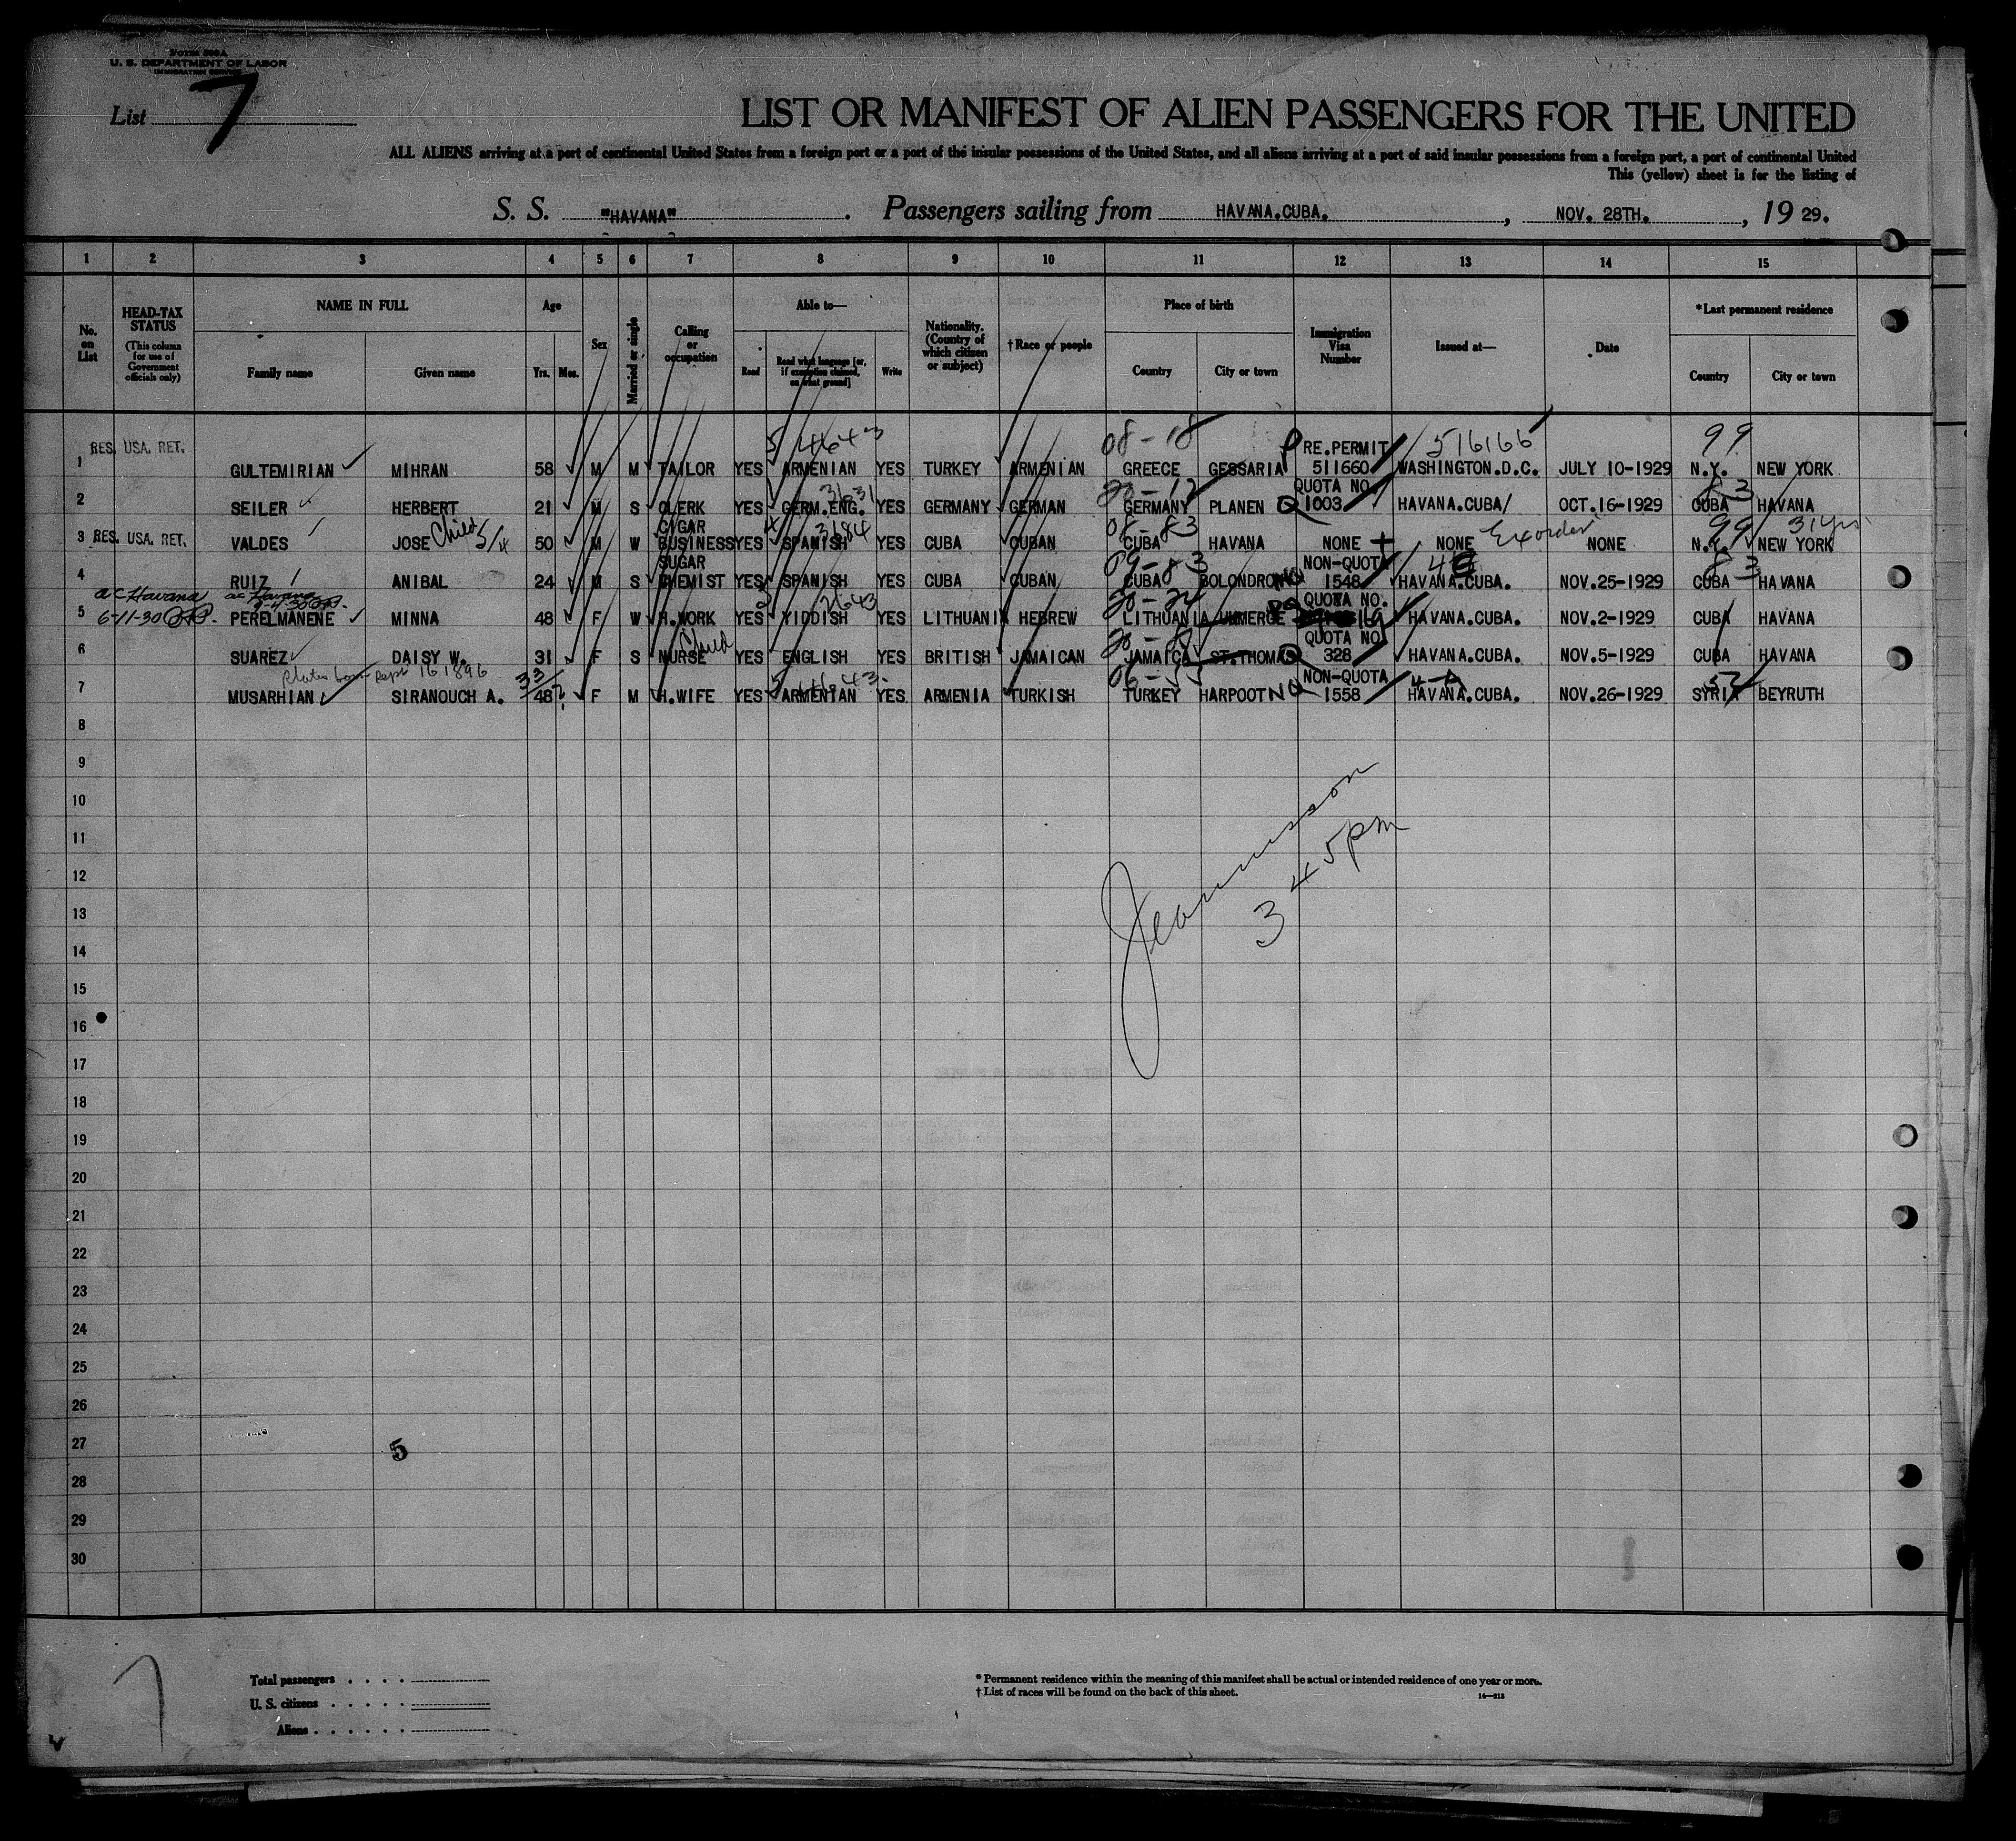 Form 500A
U. S. DEPARTMENT OF LABOR
IMMIGRATION SERVICE
List 7
LIST OR MANIFEST OF ALIEN PASSENGERS FOR THE UNITED
ALL ALIENS arriving at a port of continental United States from a foreign port or a port of the insular possessions of the United States, and all aliens arriving at a port of said insular possessions from a foreign port, a port of continental United
This (yellow) sheet is for the listing of
S. S. "HAVANA". Passengers sailing from HAVANA.CUBA., NOV. 28TH., 19 29.
1 2 3 4 5 6 7 8 9 10 11 12 13 14 15
No. on List
HEAD-TAX STATUS
(This column for use of Government officials only)
NAME IN FULL
Family name Given name
Age
Yrs. Mos.
Sex
Married or single
Calling or occupation
Able to—
Read Read what language [or, if exemption claimed, on what ground] Write
Nationality. (Country of which citizen or subject)
†Race or people
Place of birth
Country City or town
Immigration Visa Number
Issued at—
Date
*Last permanent residence
Country City or town
RES. USA. RET. 5 4643 08-18 RE.PERMIT 516166 99
1 GULTEMIRIAN MIHRAN 58 M M TAILOR YES ARMENIAN YES TURKEY ARMENIAN GREECE GESSARIA 511660 WASHINGTON.D.C. JULY 10-1929 N.Y. NEW YORK
QUOTA NO. 83
2 SEILER HERBERT 21 M S CLERK YES GERM.ENG. YES GERMANY GERMAN GERMANY PLANEN Q 1003 HAVANA.CUBA/ OCT.16-1929 CUBA HAVANA
CIGAR 3184 08-83 99 31yrs
3 RES. USA. RET. VALDES JOSE Child 5/4 50 M W BUSINESS YES SPANISH YES CUBA CUBAN CUBA HAVANA NONE NONE Exorder NONE N.Y. NEW YORK
SUGAR 09-83 NON-QUOTA 83
4 RUIZ ANIBAL 24 M S CHEMIST YES SPANISH YES CUBA CUBAN CUBA BOLONDRON NQ 1548 HAVANA.CUBA. NOV.25-1929 CUBA HAVANA
ac Havana ac Havana 2643 QUOTA NO.
5 6-11-30 PERELMANENE MINNA 48 F W H.WORK YES YIDDISH YES LITHUANIA HEBREW LITHUANIA UMMERGE HAVANA.CUBA. NOV.2-1929 CUBA HAVANA
Child QUOTA NO.
6 SUAREZ DAISY W. 31 F S NURSE YES ENGLISH YES BRITISH JAMAICAN JAMAICA ST.THOMAS Q 328 HAVANA.CUBA. NOV.5-1929 CUBA HAVANA
States born Sept 16 1896 33 06-55 NON-QUOTA 4-A 57
7 MUSARHIAN SIRANOUCH A. 48? F M H.WIFE YES ARMENIAN YES ARMENIA TURKISH TURKEY HARPOOT NQ 1558 HAVANA.CUBA. NOV.26-1929 SYRIA BEYRUTH
8
9
10
11
12
13
14
15
16
17
18
19
20
21
22
23
24
25
26
27
28
29
30
3 45pm
5
Total passengers
U. S. citizens
Aliens
* Permanent residence within the meaning of this manifest shall be actual or intended residence of one year or more.
† List of races will be found on the back of this sheet.
14—213
7